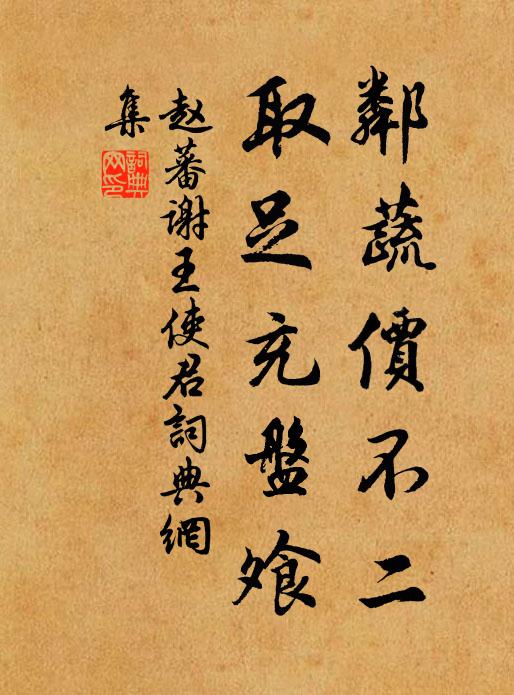 鄰蔬價不二
取足充盤飧
赵蕃謝王使君詞典網
集
詞典
网印